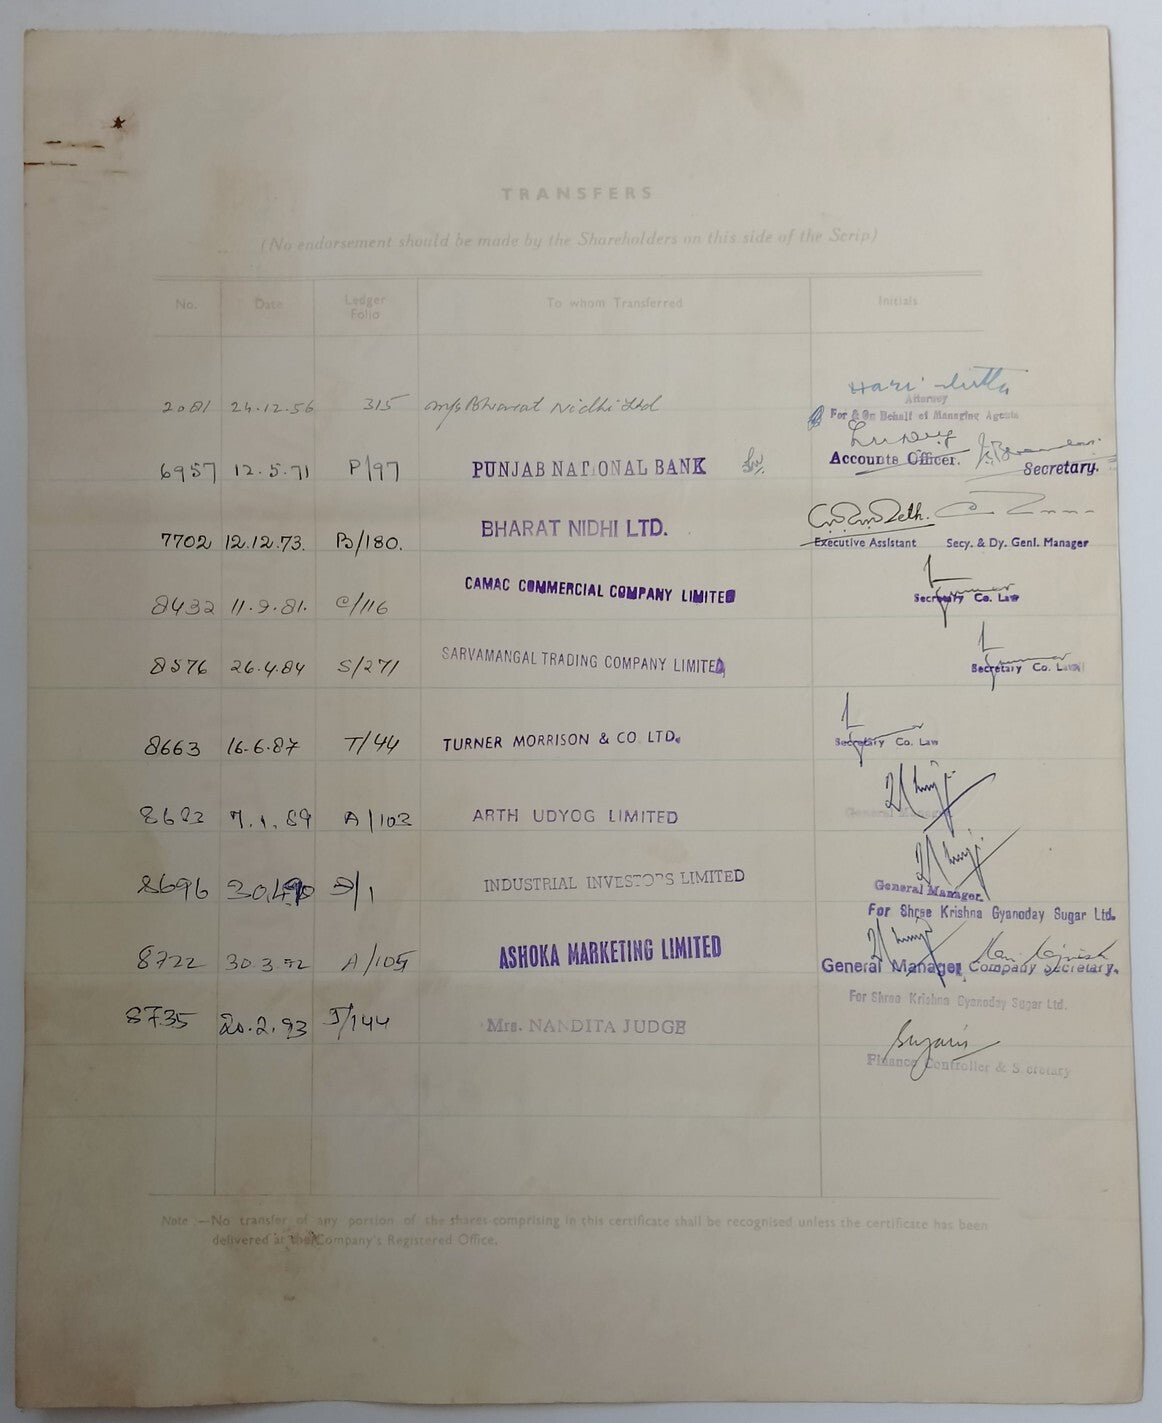 TRANSFERS
(No endorsement should be made by the Shareholders on this side of the Scrip)
No. Date Ledger Folio To whom Transferred Initials
2081 24.12.56 315 M/s Bharat Nidhi Ltd
Attorney
For & On Behalf of Managing Agents
6957 12.5.71 P/97 PUNJAB NATIONAL BANK Accounts Officer. Secretary.
7702 12.12.73. B/180. BHARAT NIDHI LTD.
Executive Assistant Secy. & Dy. Genl. Manager
8432 11.9.81. C/116 CAMAC COMMERCIAL COMPANY LIMITED Secretary Co. Law
8576 26.4.84 S/271 SARVAMANGAL TRADING COMPANY LIMITED Secretary Co. Law
8663 16.6.87 T/44 TURNER MORRISON & CO. LTD. Secretary Co. Law
7.1.89 A/103 ARTH UDYOG LIMITED General Manager
8696 INDUSTRIAL INVESTORS LIMITED General Manager.
For Shree Krishna Gyanoday Sugar Ltd.
8722 30.3.92 A/105 ASHOKA MARKETING LIMITED General Manager Company Secretary.
For Shree Krishna Gyanoday Sugar Ltd.
8735 20.2.93 J/144 Mrs. NANDITA JUDGE
Finance Controller & Secretary
Note :—No transfer of any portion of the shares comprising in this certificate shall be recognised unless the certificate has been
delivered at the Company's Registered Office.